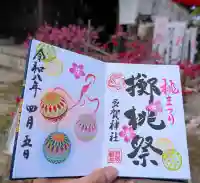 桃まつり
擲桃祭
多賀神社
令和八年 四月五日